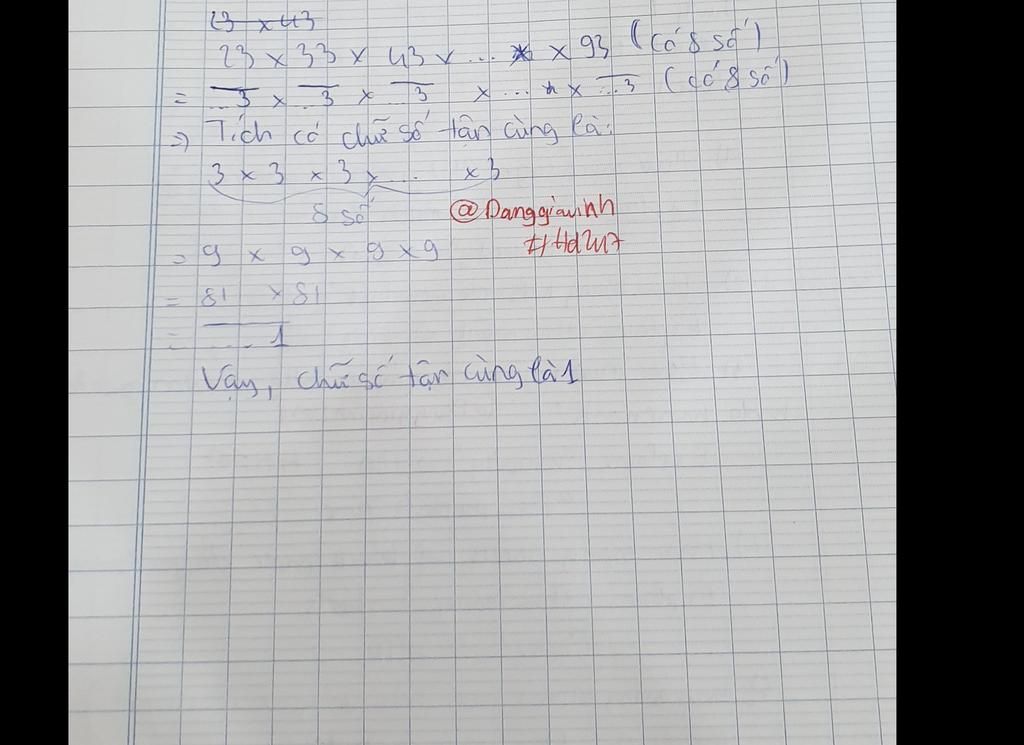 23 x 43
23 x 33 x 43 x ... x 93 (Có 8 số)
= ...3 x ...3 x ...3 x ... x ...3 (có 8 số)
=> Tích có chữ số tận cùng là:
3 x 3 x 3 x ... x 3
8 số
@Danggiavinh
= 9 x 9 x 9 x 9
= 81 x 81
= ...1
Vậy, chữ số tận cùng là 1